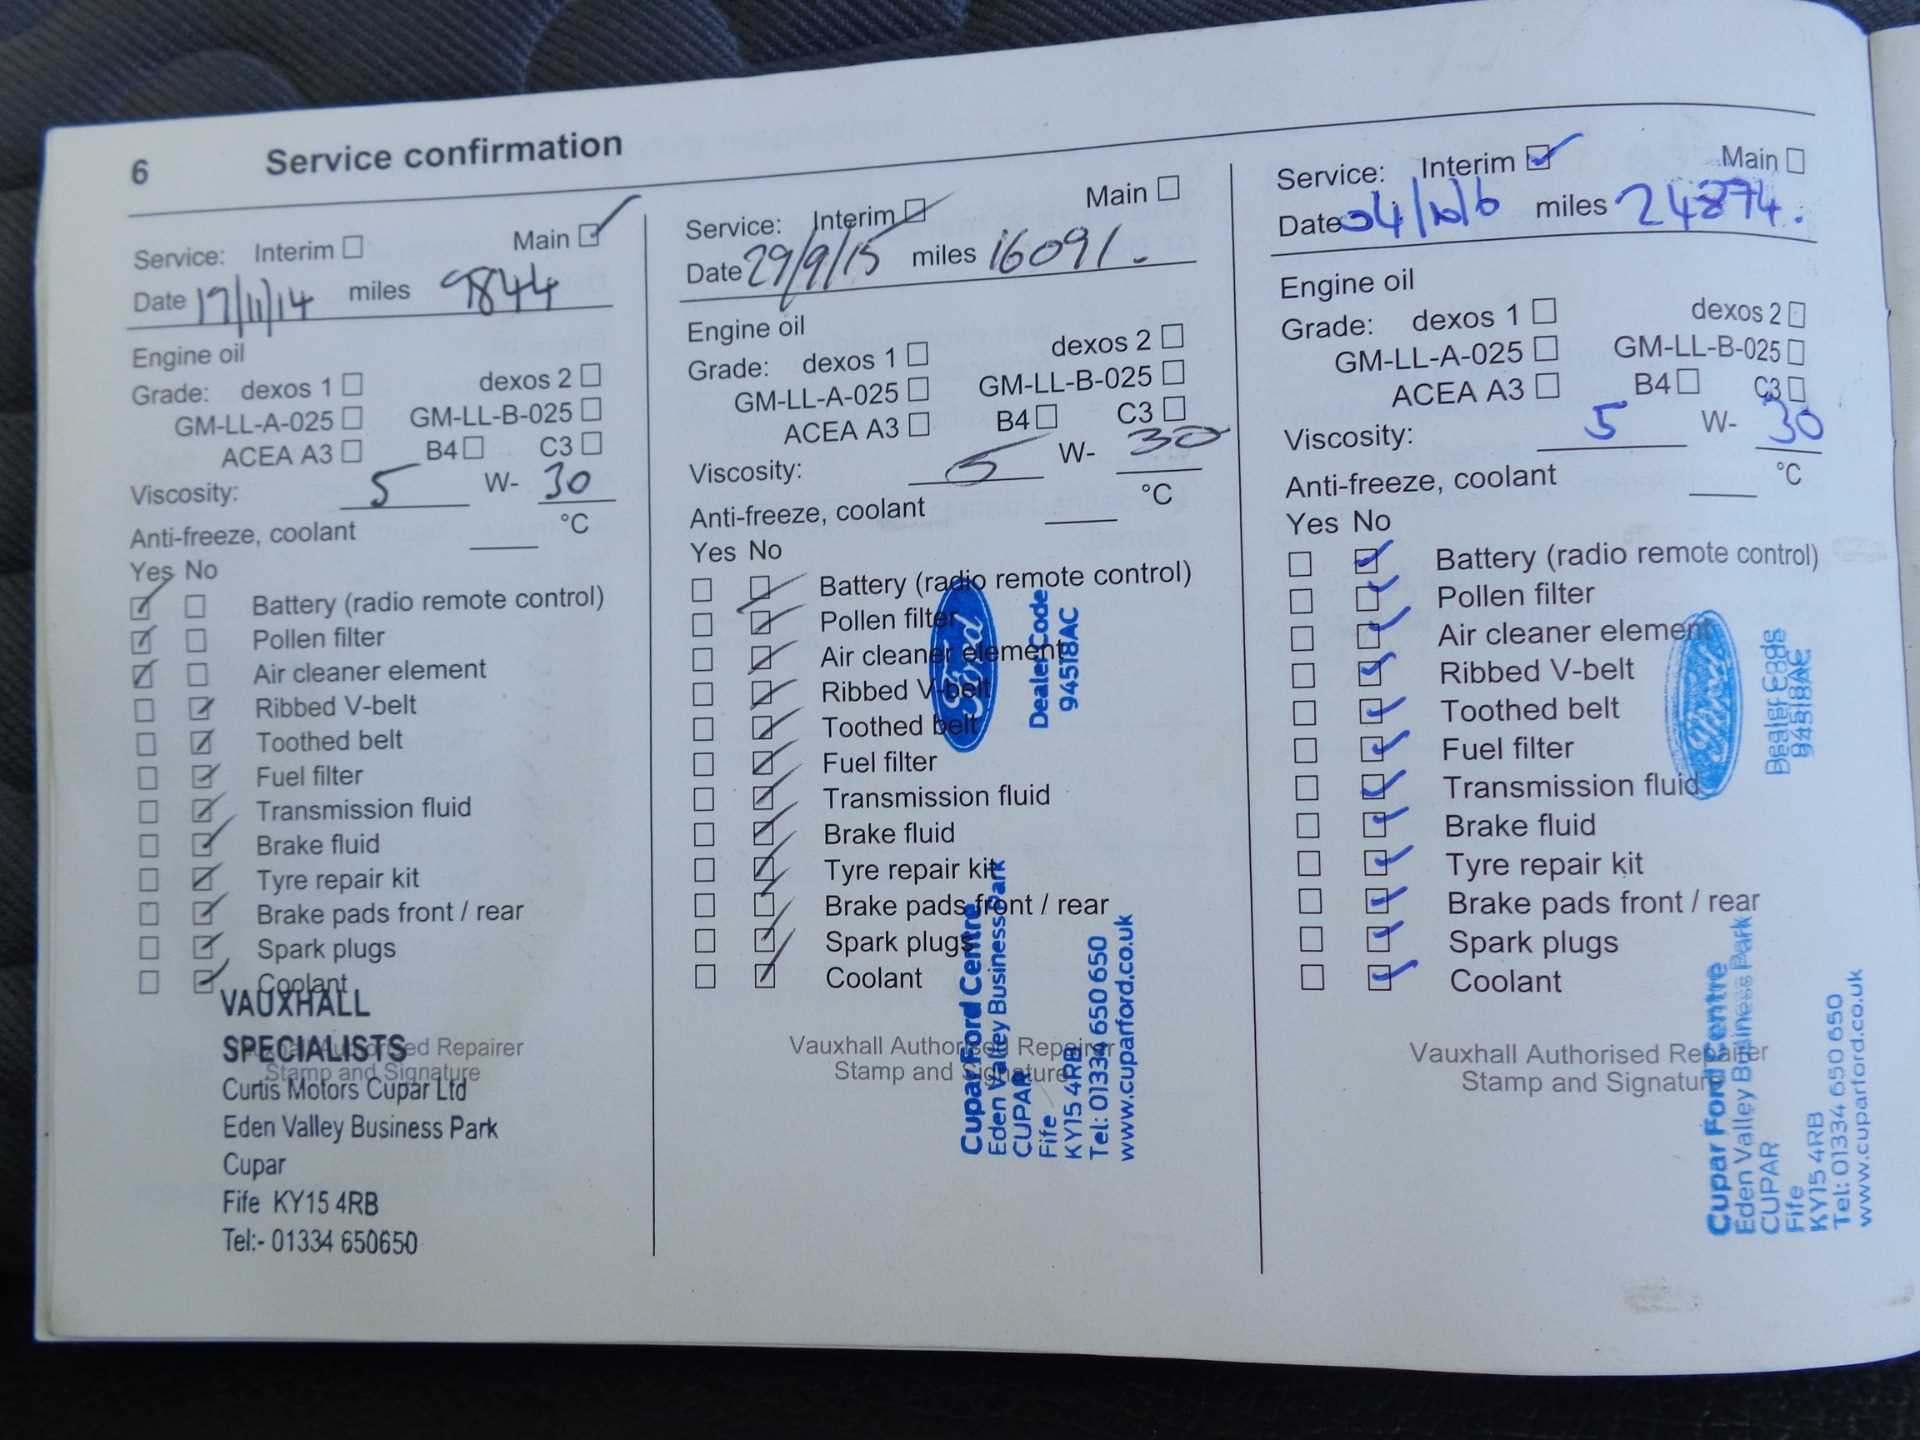 6 Service confirmation
Service: Interim Main
Date 17/11/14 miles 9844
Engine oil
Grade: dexos 1 dexos 2
GM-LL-A-025 GM-LL-B-025
ACEA A3 B4 C3
Viscosity: 5 W- 30
Anti-freeze, coolant °C
Yes No
Battery (radio remote control)
Pollen filter
Air cleaner element
Ribbed V-belt
Toothed belt
Fuel filter
Transmission fluid
Brake fluid
Tyre repair kit
Brake pads front / rear
Spark plugs
Coolant
Vauxhall Authorised Repairer
Stamp and Signature
VAUXHALL
SPECIALISTS
Curtis Motors Cupar Ltd
Eden Valley Business Park
Cupar
Fife KY15 4RB
Tel:- 01334 650650
Service: Interim Main
Date 29/9/15 miles 16091.
Engine oil
Grade: dexos 1 dexos 2
GM-LL-A-025 GM-LL-B-025
ACEA A3 B4 C3
Viscosity: 5 W- 30
Anti-freeze, coolant °C
Yes No
Battery (radio remote control)
Pollen filter
Air cleaner element
Ribbed V-belt
Toothed belt
Fuel filter
Transmission fluid
Brake fluid
Tyre repair kit
Brake pads front / rear
Spark plugs
Coolant
Vauxhall Authorised Repairer
Stamp and Signature
Ford
Dealer Code
94518AC
Cupar Ford Centre
Eden Valley Business Park
CUPAR
Fife
KY15 4RB
Tel: 01334 650 650
www.cuparford.co.uk
Service: Interim Main
Date 04/10/16 miles 24874.
Engine oil
Grade: dexos 1 dexos 2
GM-LL-A-025 GM-LL-B-025
ACEA A3 B4 C3
Viscosity: 5 W- 30
Anti-freeze, coolant °C
Yes No
Battery (radio remote control)
Pollen filter
Air cleaner element
Ribbed V-belt
Toothed belt
Fuel filter
Transmission fluid
Brake fluid
Tyre repair kit
Brake pads front / rear
Spark plugs
Coolant
Vauxhall Authorised Repairer
Stamp and Signature
Ford
Dealer Code
94518AC
Cupar Ford Centre
Eden Valley Business Park
CUPAR
Fife
KY15 4RB
Tel: 01334 650 650
www.cuparford.co.uk